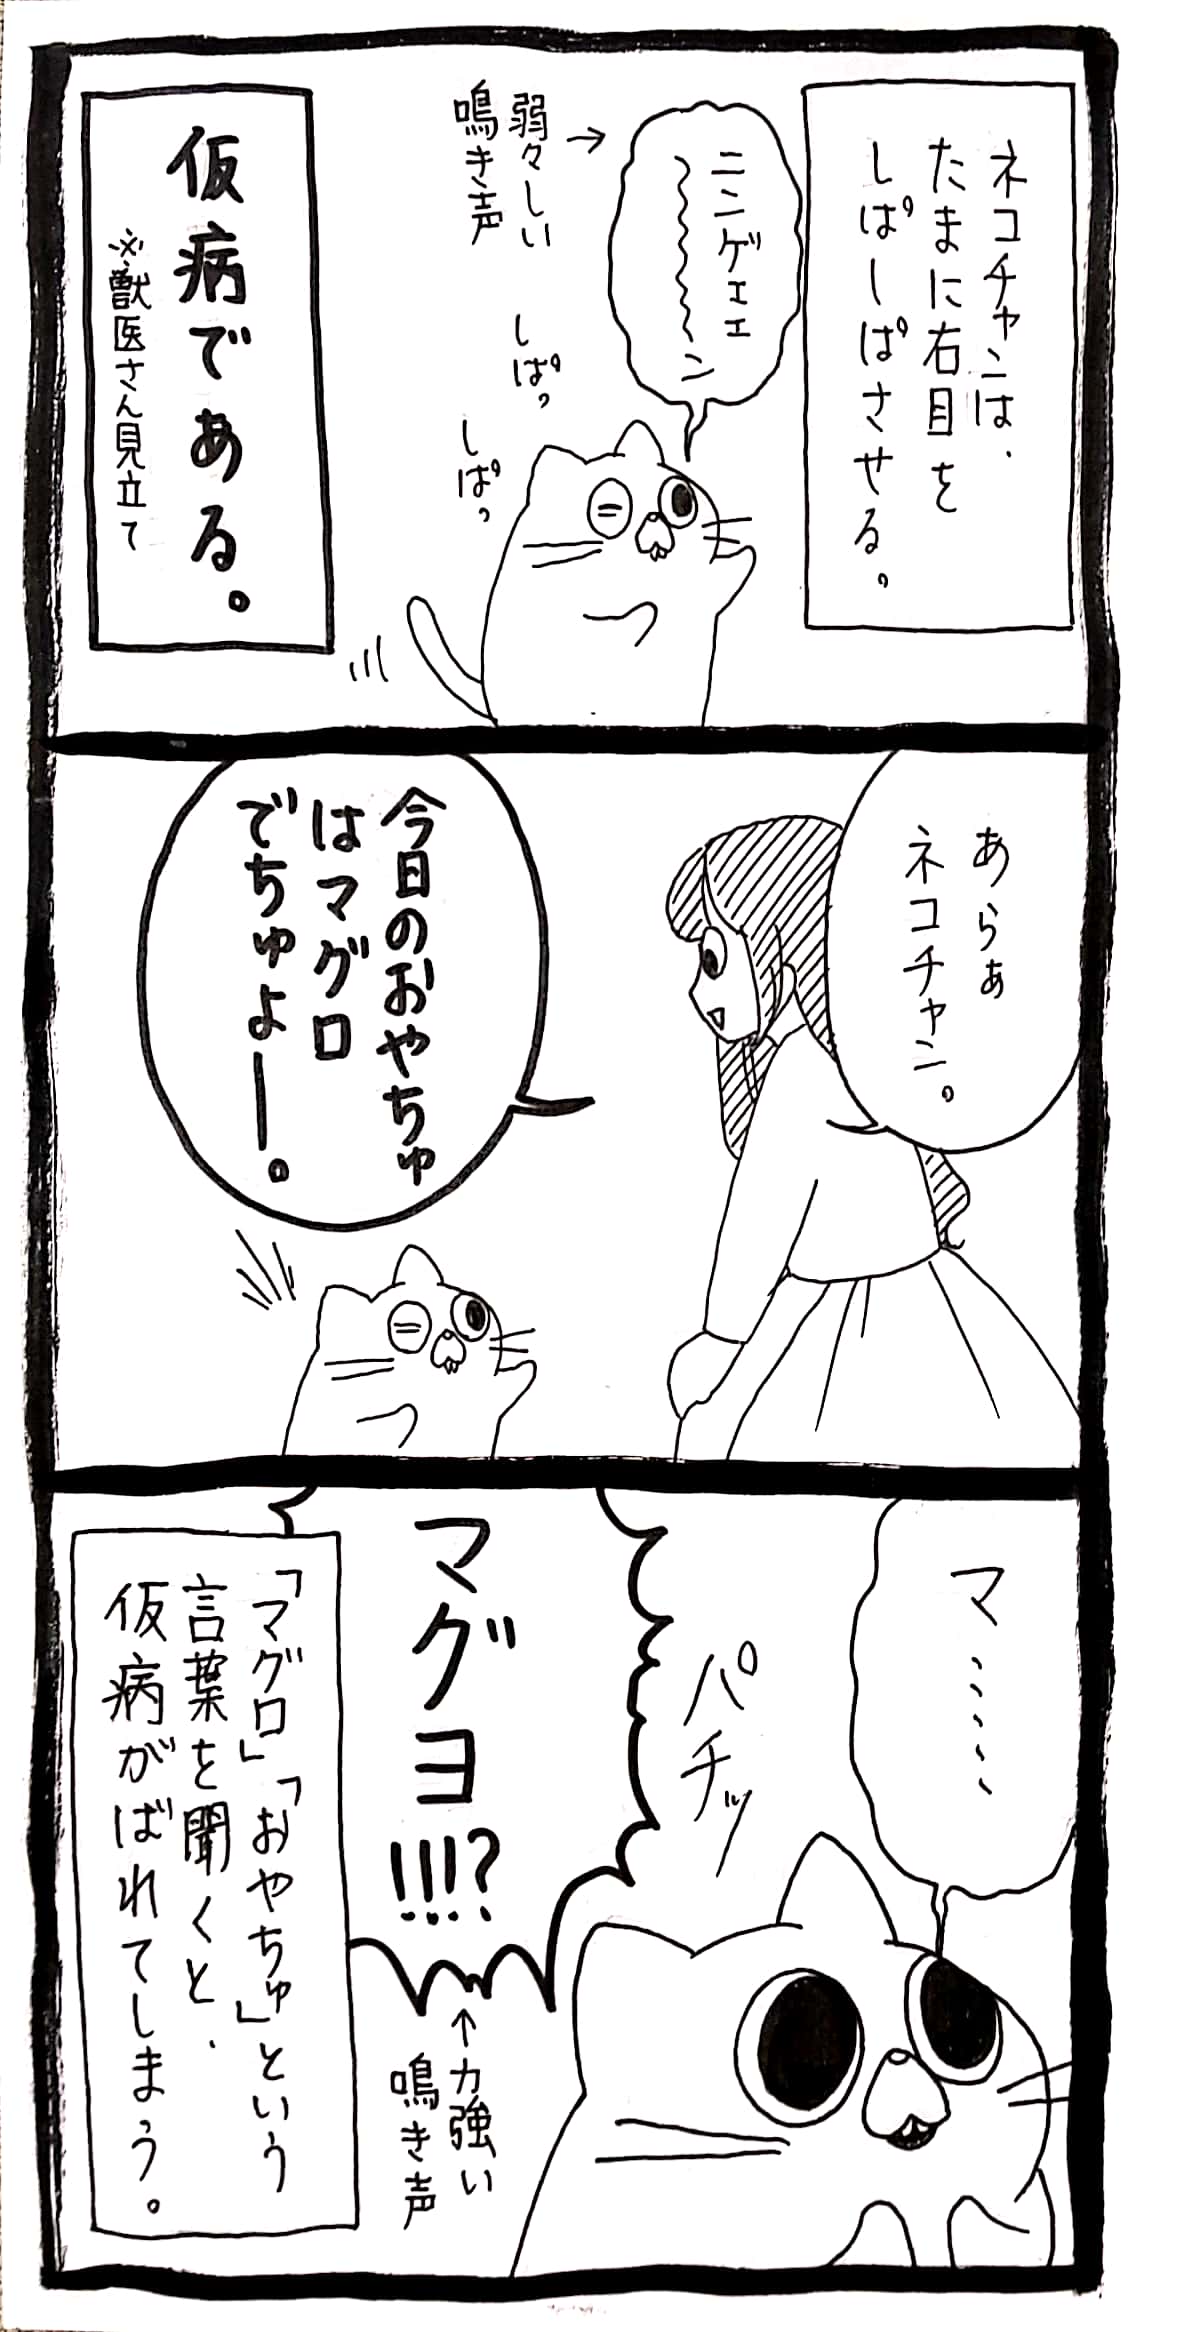 ネコチャンは、
たまに右目を
しぱしぱさせる。
ニンゲェェ
〜〜〜〜ン
→
弱々しい
鳴き声
しぱっ
しぱっ
仮病である。
※獣医さん見立て
あらぁ
ネコチャン。
今日のおやちゅ
はマグロ
でちゅよー。
マ……
パチッ
マグヨ!!!?
↑力強い
鳴き声
「マグロ」「おやちゅ」という
言葉を聞くと、
仮病がばれてしまう。